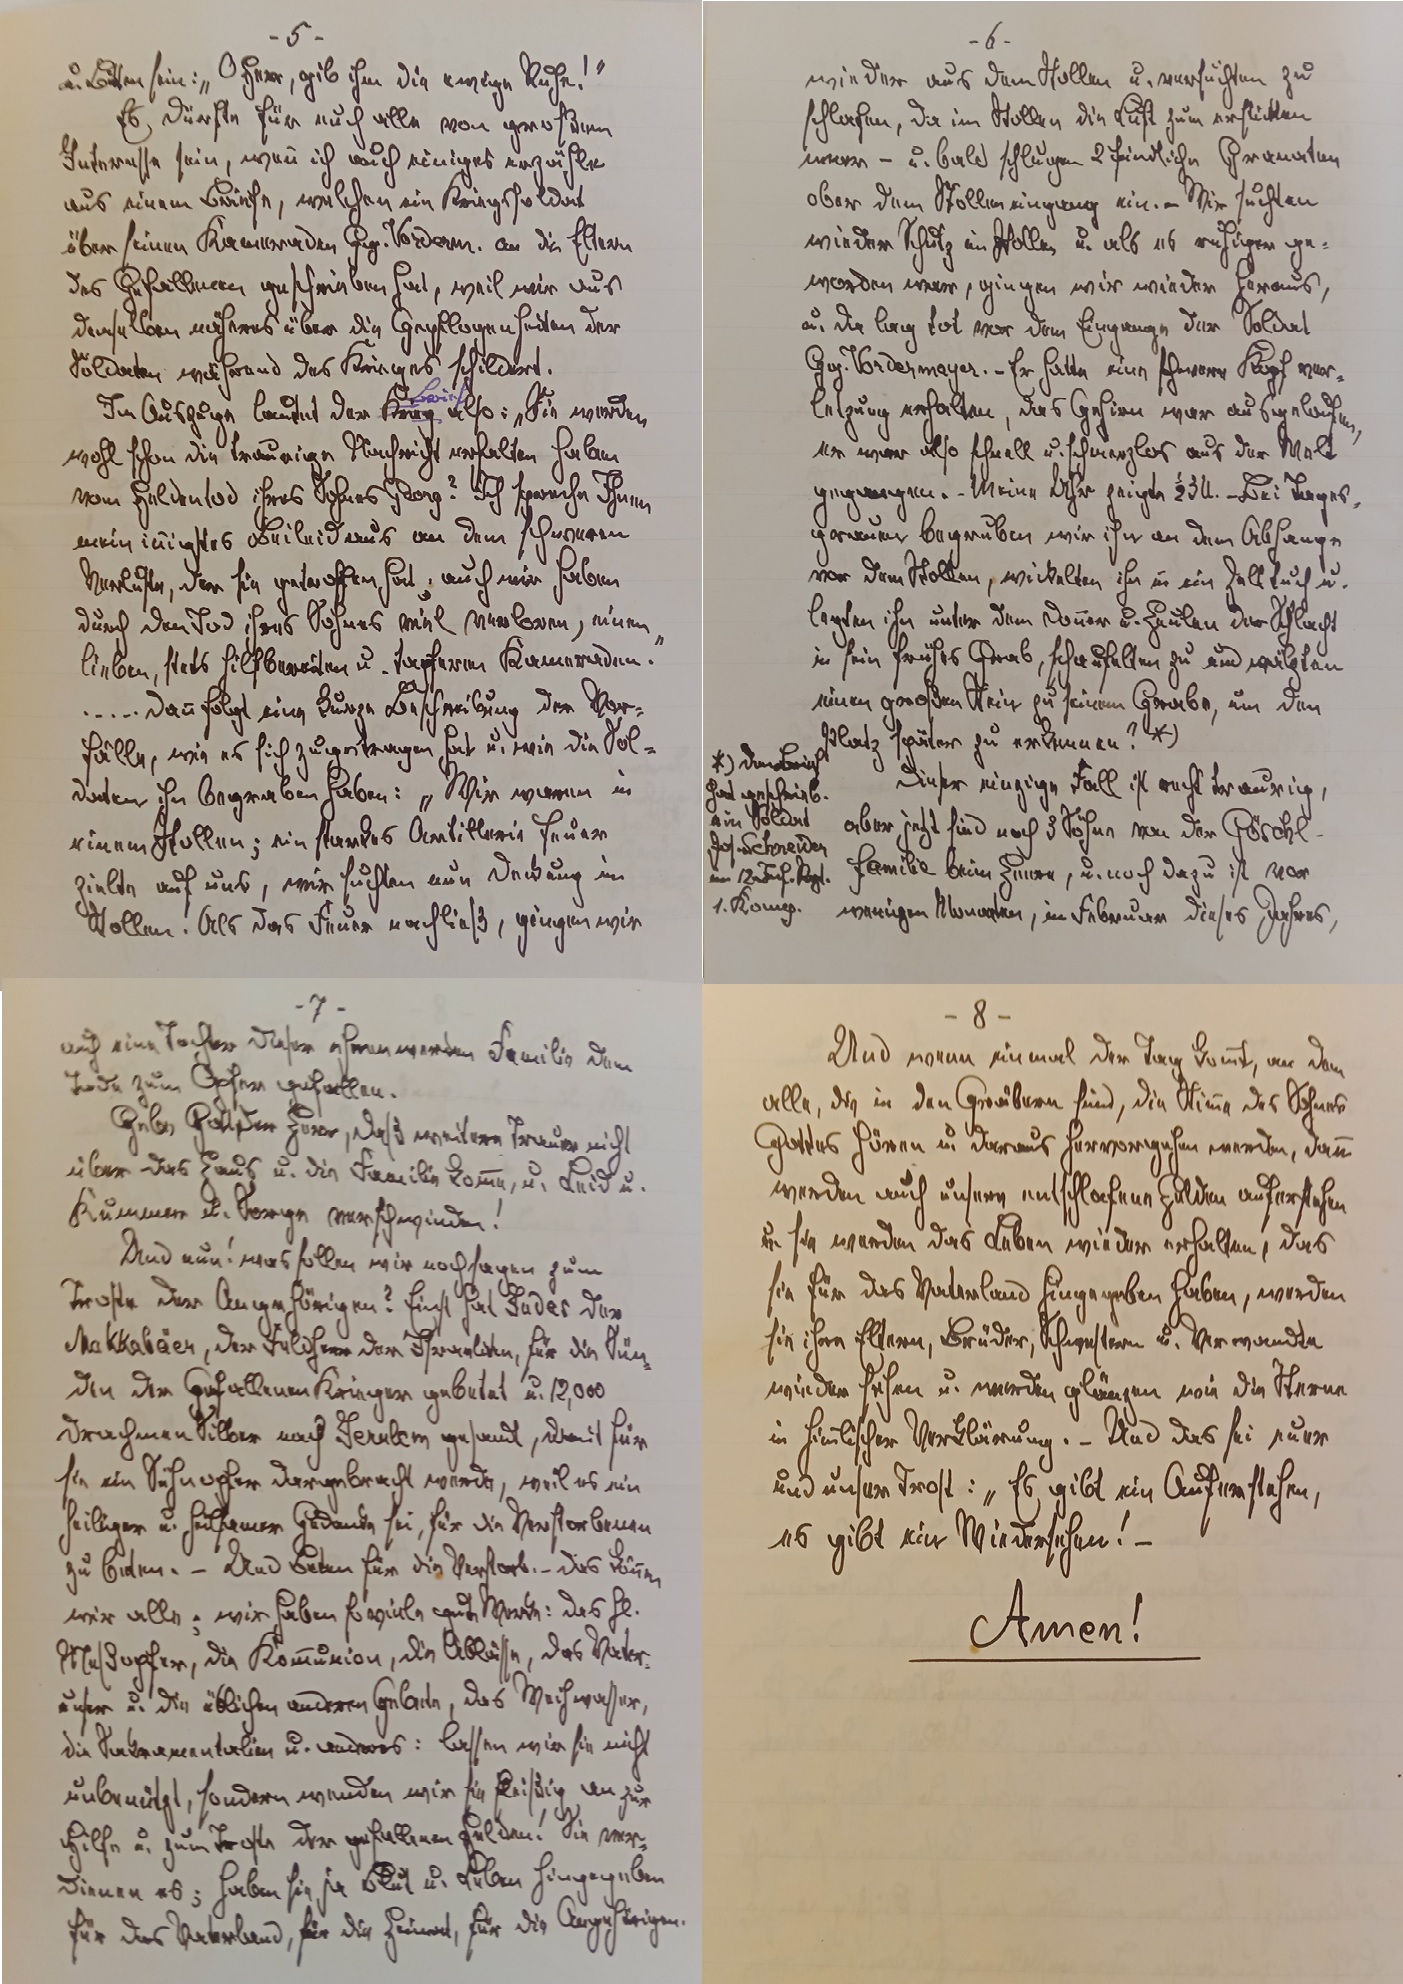 - 5 -
u. Bitten sein: „O Herr, gib ihm die ewige Ruhe!"
Es dürfte für euch alle von großem
Interesse sein, wen̄ ich euch einiges erzähle
aus einem Briefe, welchen ein Kriegssoldat
über seinen Kameraden Gg. Vorderm. an die Eltern
des Gefallenen geschrieben hat, weil wir aus
demselben näheres über die Gepflogenheiten der
Soldaten während des Krieges schildert.
Brief
Im Auszuge lautet der Krieg also: „Sie werden
wohl schon die traurige Nachricht erhalten haben
vom Heldentod ihres Sohnes Georg? Ich spreche Ihnen
mein in̄igstes Beileid aus an dem schweren
Verluste, der sie getroffen hat; auch wir haben
durch den Tod ihres Sohnes viel verloren, einen
lieben, stets hilfbereiten u. tapferen Kameraden."
..... Dan̄ folgt eine kurze Beschreibung der Vor-
fälle, wie es sich zugetragen hat u. wie die Sol-
daten ihn begraben haben: „Wir waren in
einem Stollen; ein starkes Artillerie Feuer
zielte auf uns, wir suchten nun Deckung im
Stollen! Als das Feuer nachließ, gingen wir
- 6 -
wieder aus dem Stollen u. versuchten zu
schlafen, da im Stollen die Luft zum ersticken
war – u. bald schlugen 2 feindliche Granaten
ober dem Stolleneingang ein. – Wir suchten
wieder Schutz im Stollen u. als es ruhiger ge-
worden war, gingen wir wieder heraus,
u. da lag tot vor dem Eingange der Soldat
Gg. Vordermayer. – Er hatte eine schwere Kopf ver-
letzung erhalten, das Gehirn war ausgelaufen,
er war also schnell u. schmerzlos aus der Welt
gegangen. – Meine Uhr zeigte ½3 U. – Bei Tages-
grauen begruben wir ihn an dem Abhange
vor dem Stollen, wickelten ihn in ein Zelttuch u.
legten ihn unter dem Don̄er u. Heulen der Schlacht
in sein frühes Grab, schaufelten zu und wälzten
einen großen Stein zu seinem Grabe, um den
Platz später zu erkennen? *)
*) Den Brief
hat geschrieb.
ein Soldat
Jos. Schneider
im 12. Inf. Regt.
1. Komp.
Dieser einzige Fall ist recht traurig,
aber jetzt sind noch 3 Söhne von der Göschl-
Familie beim Heere, u. noch dazu ist vor
wenigen Monaten, im Februar dieses Jahres,
- 7 -
auch eine Tochter dieser ehrenwerten Familie dem
Tode zum Opfer gefallen.
Gebe Gott der Herr, daß weitere Trauer nicht
über das Haus u. die Familie kom̄e, u. Leid u.
Kummer u. Sorge verschwinden!
Und nun! was sollen wir noch sagen zum
Troste der Angehörigen? Einst hat Judas der
Makkabäer, der Feldherr der Israeliten, für die Sün-
den der Gefallenen Krieger gebetet u. 12,000
Drachmen Silber nach Jerusalem gesandt, damit für
sie ein Sühnopfer dargebracht werde, weil es ein
heiliger u. heilsamer Gedanke sei, für die Verstorbenen
zu beten. – Und beten für die Verstorb. – das kön̄en
wir alle; wir haben so viele gute Werke: das hl.
Meßopfer, die Kom̄union, die Ablässe, das Vater-
unser u. die üblichen anderen Gebete, das Weihwasser,
die Sakramentalien u. anderes: lassen wir sie nicht
unbenützt, sondern wenden wir sie fleißig an zur
Hilfe u. zum Troste der gefallenen Helden! Sie ver-
dienen es; haben sie ja Blut u. Leben hingegeben
für das Vaterland, für die Heimat, für die Angehörigen.
- 8 -
Und wenn einmal der Tag kom̄t, an dem
alle, die in den Gräbern sind, die Stim̄e des Sohnes
Gottes hören u. daraus hervorgehen werden, dann
werden auch unsere entschlafene Helden auferstehen
u. sie werden das Leben wieder erhalten, das
sie für das Vaterland hingegeben haben, werden
sie ihre Eltern, Brüder, Schwestern u. Verwandte
wieder sehen u. werden glänzen wie die Sterne
in him̄lischer Verklärung. – Und das sei euer
und unser Trost: „Es gibt ein Auferstehen,
es gibt ein Wiedersehen! –
Amen!